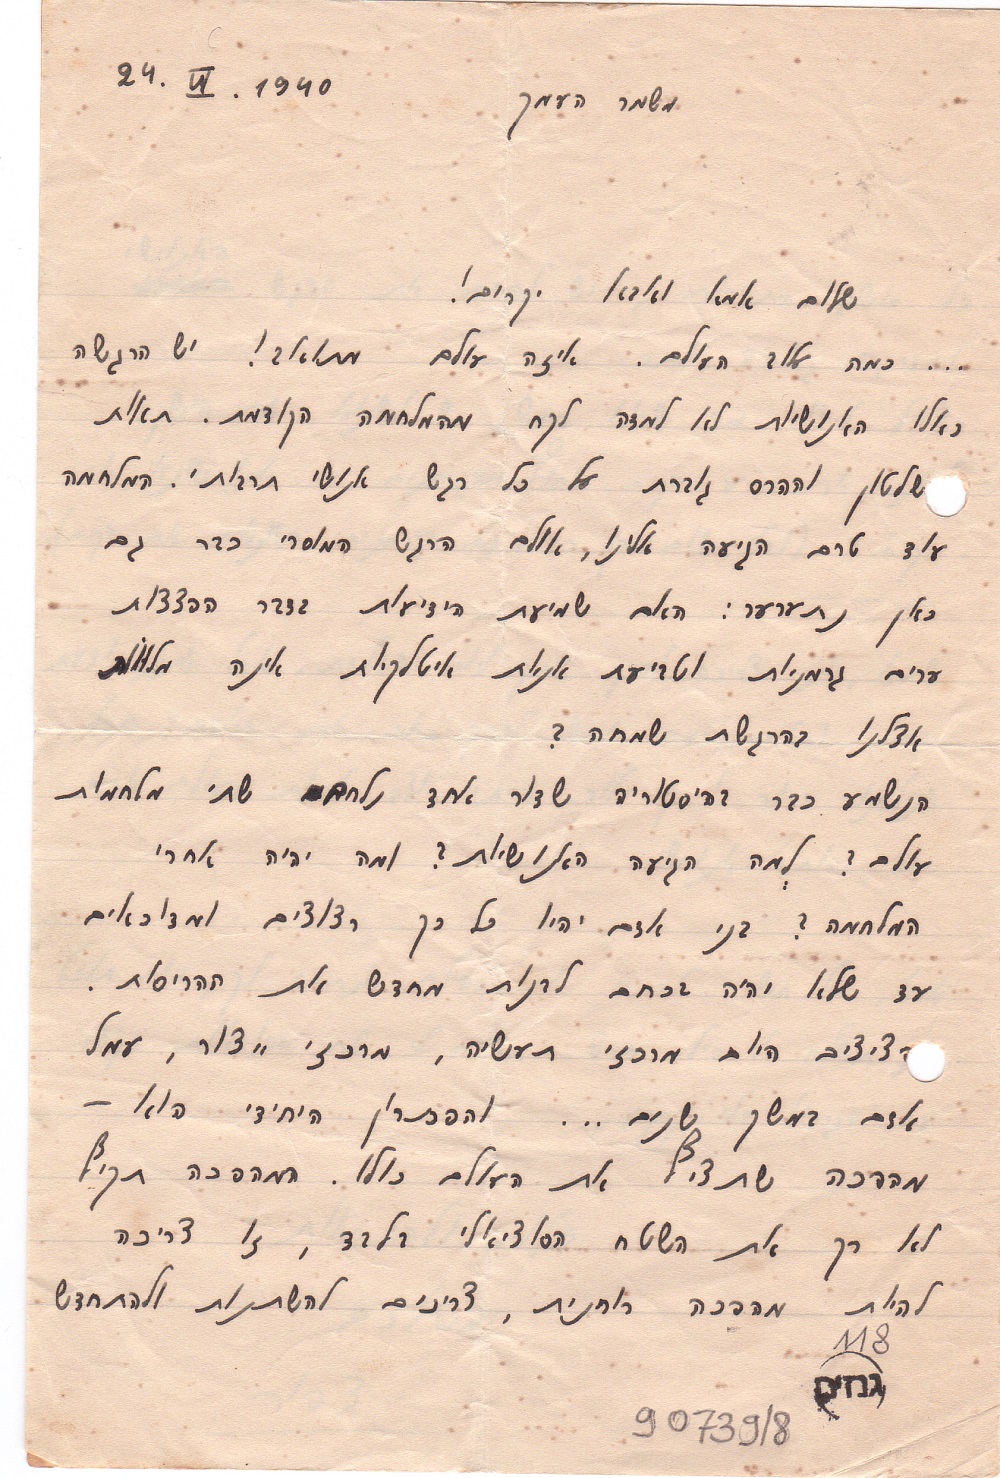 24. VI. 1940
משמר העמק
שלום אמא ואבא יקרים!
... כמה טוב העולם. איזה עולם מתואב! יש הרגשה
כאלו האנושיות לא למדה לקח מהמלחמה הקודמת. תאות
שלטון וההרס גוברת על כל רגש אנושי תרבותי. המלחמה
עוד טרם הגיעה אלינו, אולם הרגש המוסרי כבר גם
כאן נתערער: האם שמיעת הידיעות בדבר הפצצות
ערים גרמניות וטביעת אניות איטלקיות אינה מלווה
אצלנו בהרגשת שמחה?
הנשמע כבר בהיסטוריה שדור אחד נלחם שתי מלחמות
עולם? לְמה הגיעה האנושיות? ומה יהיה אחרי
המלחמה? בני אדם יהיו כל כך רצוצים ומדוכאים
עד שלא יהיה בכחם לבנות מחדש את ההריסות.
היום מרכזי תעשיה, מרכזי ייצור, עמל
אדם במשך שנים ... והפתרון היחידי הוא –
מהפכה שתציף את העולם כולו. המהפכה תקיף
לא רק את השטח הסוציאלי בלבד, זו צריכה
להיות מהפכה רוחנית, צריכים להשתנות ולהתחדש
118
גנזים
90739/8